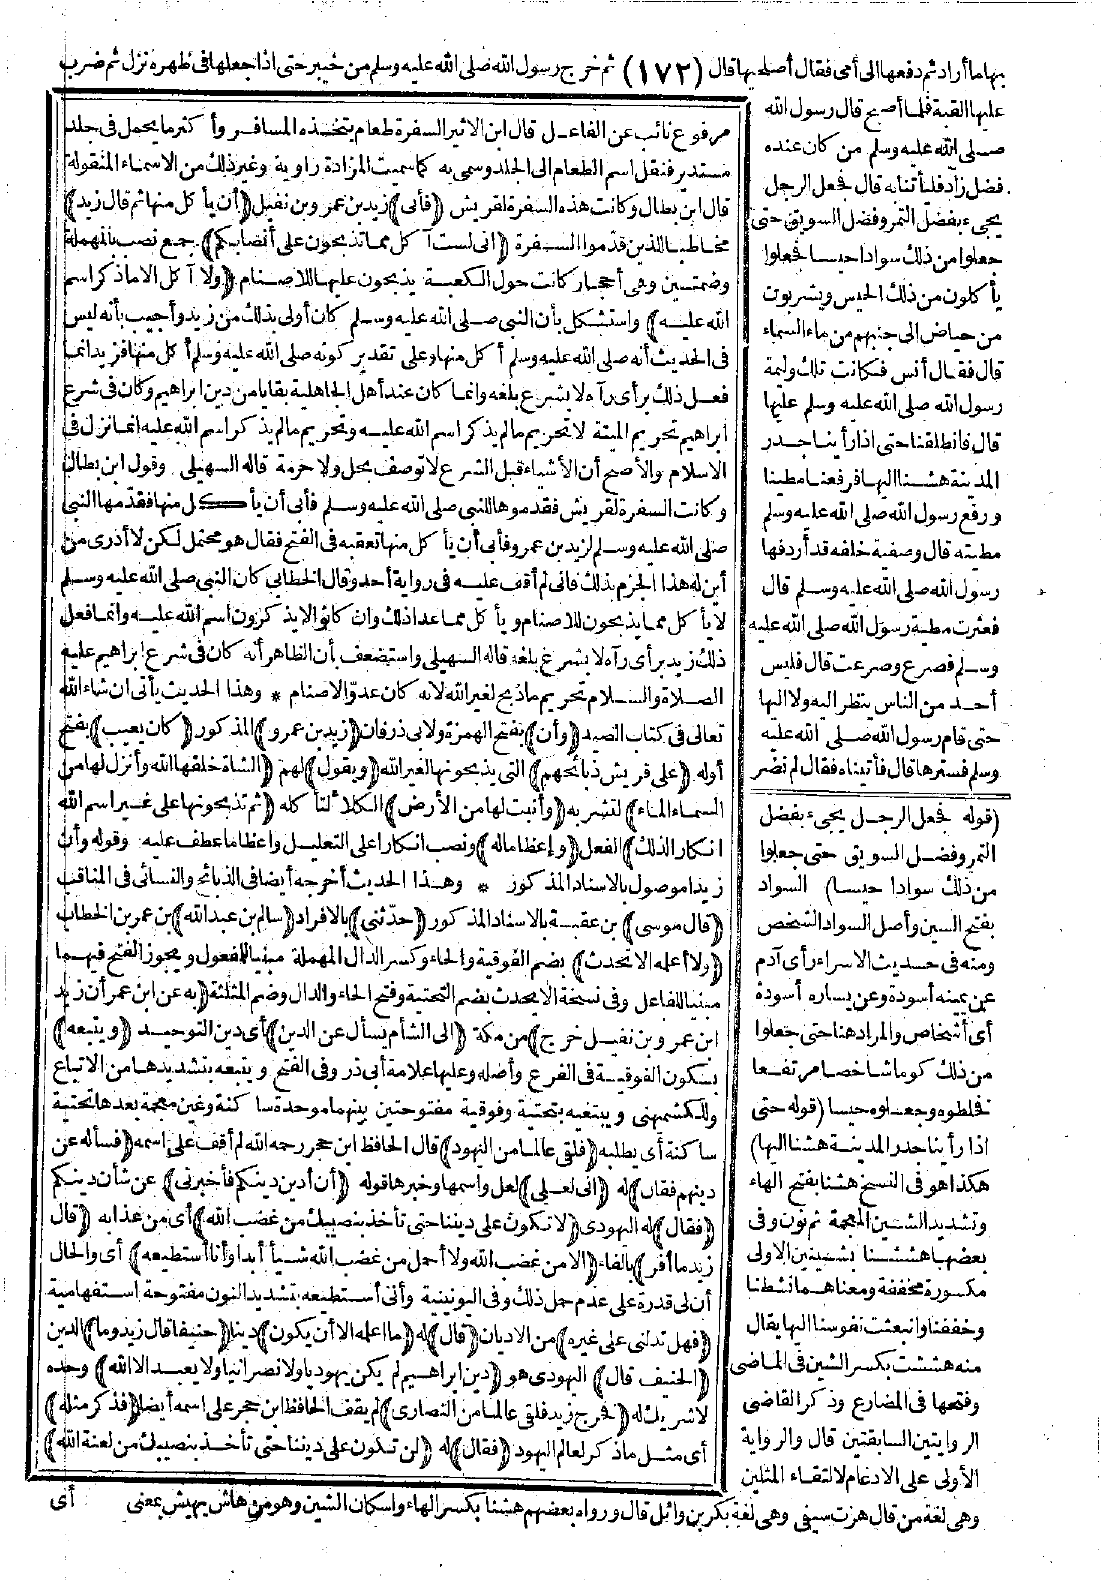 بهاما أراد ثم دفعها الى أمى فقال أصلحيها قال (١٧٢) ثم خرج رسول الله صلى الله عليه وسلم من خيبر حتى اذا جعلها فى ظهره نزل ثم ضرب
عليها القبة فلما أصبح قال رسول الله
صلى الله عليه وسلم من كان عنده
فضل زاد فليأتنا به قال فجعل الرجل
يجىء بفضل التمر وفضل السويق حتى
جعلوا من ذلك سوادا حيسا فجعلوا
يأكلون من ذلك الحيس ويشربون
من حياض الى جنبهم من ماء السماء
قال فقال أنس فكانت تلك وليمة
رسول الله صلى الله عليه وسلم عليها
قال فانطلقنا حتى اذا رأينا جدر
المدينة هششنا اليها فرفعنا مطينا
ورفع رسول الله صلى الله عليه وسلم
مطيته قال وصفية خلفه قد أردفها
رسول الله صلى الله عليه وسلم قال
فعثرت مطية رسول الله صلى الله عليه
وسلم فصرع وصرعت قال فليس
أحد من الناس ينظر اليه ولا اليها
حتى قام رسول الله صلى الله عليه
وسلم فسترها قال فأتيناه فقال لم نضر
(قوله فجعل الرجل يجىء بفضل
التمر وفضل السويق حتى جعلوا
من ذلك سوادا حيسا) السواد
بفتح السين وأصل السواد الشخص
ومنه فى حديث الاسراء رأى آدم
عن يمينه أسودة وعن يساره أسودة
أى أشخاص والمراد هنا حتى جعلوا
من ذلك كوما شاخصا مرتفعا
فخلطوه وجعلوه حيسا (قوله حتى
اذا رأينا جدر المدينة هشنا اليها)
هكذا هو فى النسخ هشنا بفتح الهاء
وتشديد الشين المعجمة ثم نون وفى
بعضها هششنا بشينين الاولى
مكسورة مخففة ومعناهما نشطنا
وخففنا وانبعثت نفوسنا اليها يقال
منه هششت بكسر الشين فى الماضى
وفتحها فى المضارع وذكر القاضى
الروايتين السابقتين قال والرواية
الأولى على الادغام لالتقاء المثلين
وهى لغة من قال هزت سيفى وهى لغة بكر بن وائل قال ورواه بعضهم هشنا بكسر الهاء واسكان الشين وهو من هاش يهيش بمعنى أى
مرفوع نائب عن الفاعل قال ابن الاثير السفرة طعام يتخذه المسافر وأكثر ما يحمل فى جلد
مستدير فنقل اسم الطعام الى الجلد وسمى به كما سميت المزادة راوية وغير ذلك من الاسماء المنقولة
قال ابن بطال وكانت هذه السفرة لقريش (فأبى) زيد بن عمرو بن نفيل (أن يأكل منها ثم قال زيد)
مخاطبا للذين قدموا السفرة (انى لست آكل مما تذبحون على أنصابكم) جمع نصب بالمهملة
وضمتين وهى أحجار كانت حول الكعبة يذبحون عليها للاصنام (ولا آكل الا ما ذكر اسم
الله عليه) واستشكل بأن النبى صلى الله عليه وسلم كان أولى بذلك من زيد وأجيب بأنه ليس
فى الحديث أنه صلى الله عليه وسلم أكل منها وعلى تقدير كونه صلى الله عليه وسلم أكل منها فزيد انما
فعل ذلك برأى رآه لا بشرع بلغه وانما كان عند أهل الجاهلية بقايا من دين ابراهيم وكان فى شرع
ابراهيم تحريم الميتة لا تحريم ما لم يذكر اسم الله عليه وتحريم ما لم يذكر اسم الله عليه انما نزل فى
الاسلام والأصح أن الأشياء قبل الشرع لا توصف بحل ولا حرمة قاله السهيلى وقول ابن بطال
وكانت السفرة لقريش فقدموها للنبى صلى الله عليه وسلم فأبى أن يأكل منها فقدمها النبى
صلى الله عليه وسلم لزيد بن عمرو فأبى أن يأكل منها تعقبه فى الفتح فقال هو محتمل لكن لا أدرى من
أين له هذا الجزم بذلك فانى لم أقف عليه فى رواية أحد وقال الخطابى كان النبى صلى الله عليه وسلم
لا يأكل مما يذبحون للاصنام ويأكل مما عدا ذلك وان كانوا لا يذكرون اسم الله عليه وانما فعل
ذلك زيد برأى رآه لا بشرع بلغه قاله السهيلى واستضعف بأن الظاهر أنه كان فى شرع ابراهيم عليه
الصلاة والسلام تحريم ماذبح لغير الله لانه كان عدو الاصنام * وهذا الحديث يأتى ان شاء الله
تعالى فى كتاب الصيد (وأن) بفتح الهمزة ولابى ذر فان (زيد بن عمرو) المذكور (كان يعيب) بفتح
أوله (على قريش ذبائحهم) التى يذبحونها لغير الله (ويقول) لهم (الشاة خلقها الله وأنزل لها من
السماء الماء) لتشربه (وأنبت لها من الأرض) الكلأ لتأكله (ثم تذبحونها على غير اسم الله
انكارا لذلك) الفعل (واعظاما له) ونصب انكارا على التعليل واعظاما عطف عليه وقوله وأن
زيدا موصول بالاسناد المذكور * وهذا الحديث أخرجه أيضا فى الذبائح والنسائى فى المناقب
(قال موسى) بن عقبة بالاسناد المذكور (حدثنى) بالافراد (سالم بن عبد الله) بن عمر بن الخطاب
(ولا أعلمه الا تحدث) بضم الفوقية والحاء وكسر الدال المهملة مبنيا للمفعول ويجوز الفتح فيهما
مبنيا للفاعل وفى نسخة الا يحدث بضم التحتية وفتح الحاء والدال وضم المثلثة (به عن ابن عمر أن زيد
ابن عمرو بن نفيل خرج) من مكة (الى الشأم يسأل عن الدين) أى دين التوحيد (ويتبعه)
بسكون الفوقية فى الفرع وأصله وعليها علامة أبى ذر وفى الفتح ويتبعه بتشديدها من الاتباع
وللكشميهنى ويبتغيه بتحتية وفوقية مفتوحتين بينهما موحدة ساكنة وغين معجمة بعدها تحتية
ساكنة أى يطلبه (فلقى عالما من اليهود) قال الحافظ ابن حجر رحمه الله لم أقف على اسمه (فسأله عن
دينهم فقال) له (انى لعلى) لعل واسمها وخبرها قوله (أن أدين دينكم فأخبرنى) عن شأن دينكم
(فقال) له اليهودى (لا تكون على ديننا حتى تأخذ بنصيبك من غضب الله) أى من عذابه (قال
زيد ما أفر) بالفاء (الا من غضب الله ولا أحمل من غضب الله شيأ أبدا وأنا أستطيعه) أى والحال
أن لى قدرة على عدم حمل ذلك وفى اليونينية وأنى أستطيعه بتشديد النون مفتوحة استفهامية
(فهل تدلنى على غيره) من الاديان (قال) له (ما أعلمه الا أن يكون) دينا (حنيفا قال زيد وما) الدين
(الحنيف قال) اليهودى هو (دين ابراهيم لم يكن يهوديا ولا نصرانيا ولا يعبد الا الله) وحده
لا شريك له (فخرج زيد فلقى عالما من النصارى) لم يقف الحافظ ابن حجر على اسمه أيضا (فذكر مثله)
أى مثل ماذكر لعالم اليهود (فقال) له (لن تكون على ديننا حتى تأخذ بنصيبك من لعنة الله)